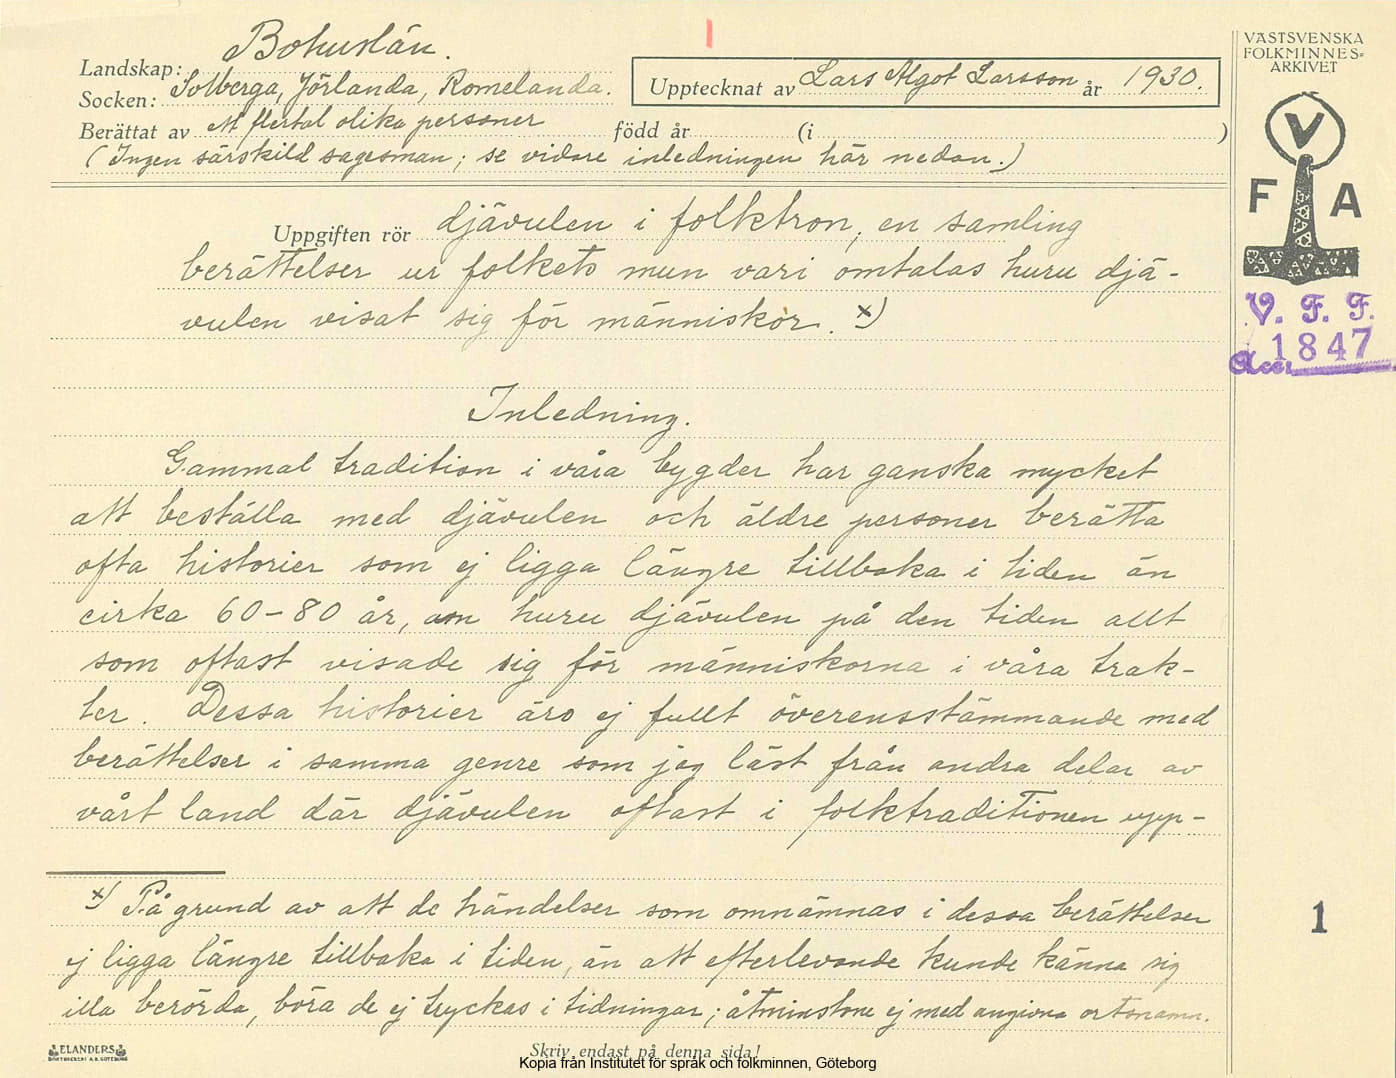 Landskap: Bohuslän.
Socken: Solberga, Jörlanda, Romelanda.
Upptecknat av Lars Algot Larsson år 1930.
Berättat av ett flertal olika personer född år (i )
(Ingen särskild sagesman; se vidare inledningen här nedan.)
VÄSTSVENSKA
FOLKMINNES=
ARKIVET
V
F A
V. F. F.
Acc. 1847
Uppgiften rör djävulen i folktron, en samling
berättelser ur folkets mun vari omtalas huru djä-
vulen visat sig för människor. x)
Inledning.
Gammal tradition i våra bygder har ganska mycket
att beställa med djävulen och äldre personer berätta
ofta historier som ej ligga längre tillbaka i tiden än
cirka 60-80 år, om huru djävulen på den tiden allt
som oftast visade sig för människorna i våra trak-
ter. Dessa historier äro ej fullt överensstämmande med
berättelser i samma genre som jag läst från andra delar av
vårt land där djävulen oftast i folktraditionen upp-
x) På grund av att de händelser som omnämnas i dessa berättelser
ej ligga längre tillbaka i tiden, än att efterlevande kunde känna sig
illa berörda, böra de ej tryckas i tidningar; åtminstone ej med angivna ortsnamn.
1
ELANDERS
BOKTRYCKERI A.B. GÖTEBORG
Skriv endast på denna sida!
Kopia från Institutet för språk och folkminnen, Göteborg